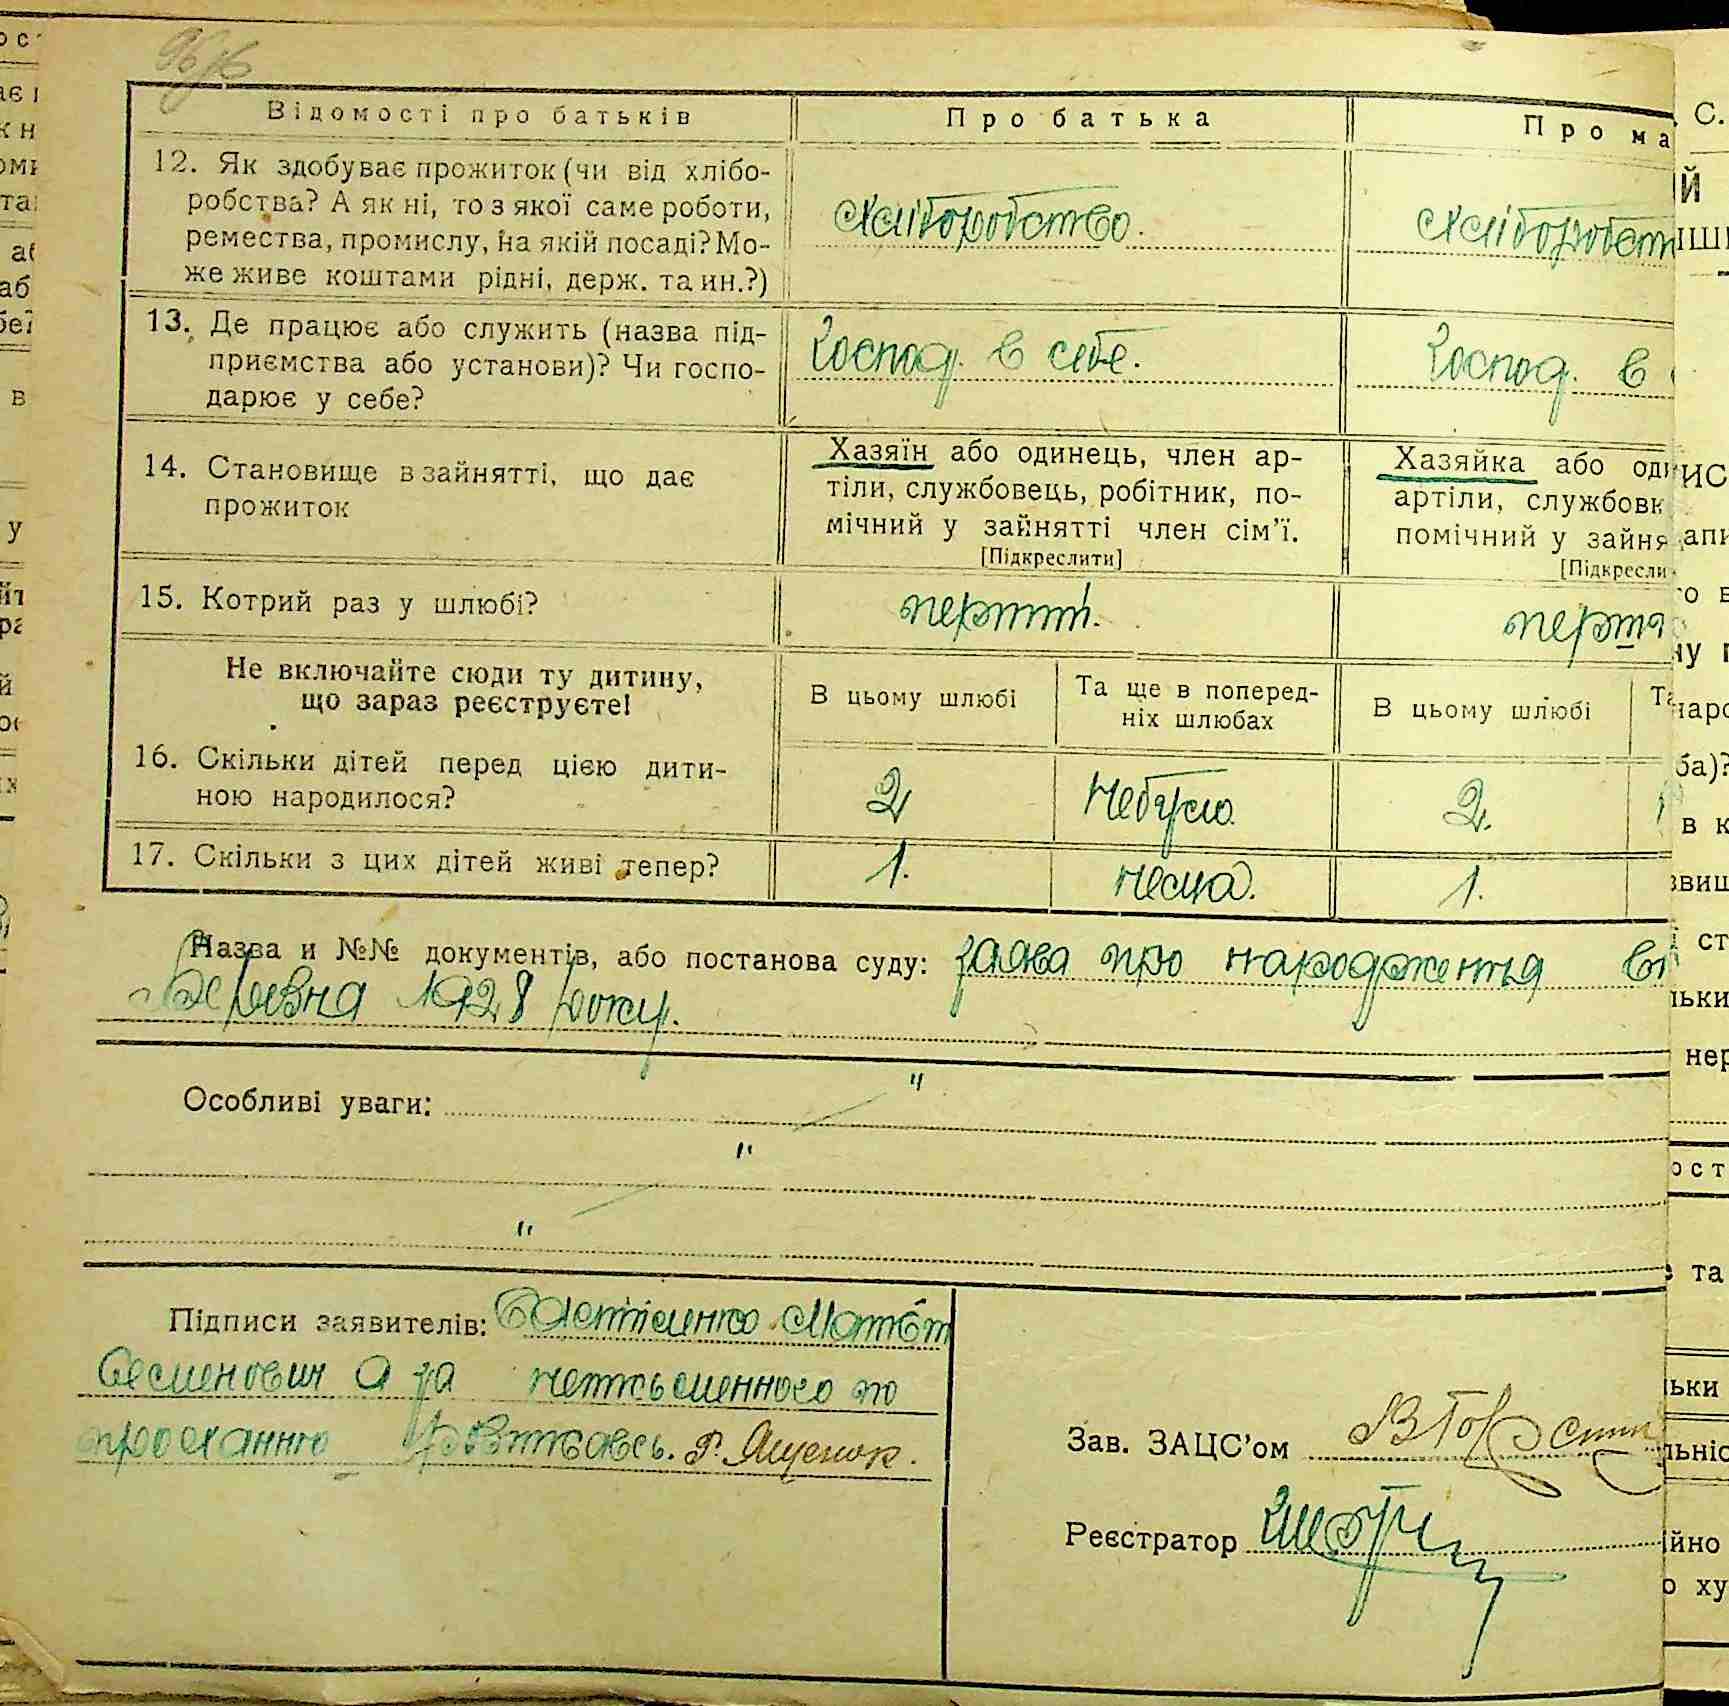 96/6
Відомості про батьків
Про батька
Про ма
12. Як здобуває прожиток (чи від хлібо-
робства? А як ні, то з якої саме роботи,
ремества, промислу, на якій посаді? Мо-
же живе коштами рідні, держ. та ин.?)
Хліборобство.
Хліборобст
13. Де працює або служить (назва під-
приємства або установи)? Чи госпо-
дарює у себе?
Господ. в себе.
Господ. в
14. Становище в зайнятті, що дає
прожиток
Хазяїн або одинець, член ар-
тіли, службовець, робітник, по-
мічний у зайнятті член сім'ї.
[Підкреслити]
Хазяйка або оди
артіли, службовк
помічний у зайня
[Підкресли
15. Котрий раз у шлюбі?
перший.
перша
Не включайте сюди ту дитину,
що зараз реєструєте!
В цьому шлюбі
Та ще в поперед-
ніх шлюбах
В цьому шлюбі
Та
16. Скільки дітей перед цією дити-
ною народилося?
2
Небуло
2.
17. Скільки з цих дітей живі тепер?
1.
нема.
1.
Назва и №№ документів, або постанова суду: заява про народження ві
1928 року.
Особливі уваги: "
"
"
Підписи заявителів: Матвій
Семенович а за неписьменного по
проханню Г. Ященок.
Зав. ЗАЦС'ом
Реєстратор